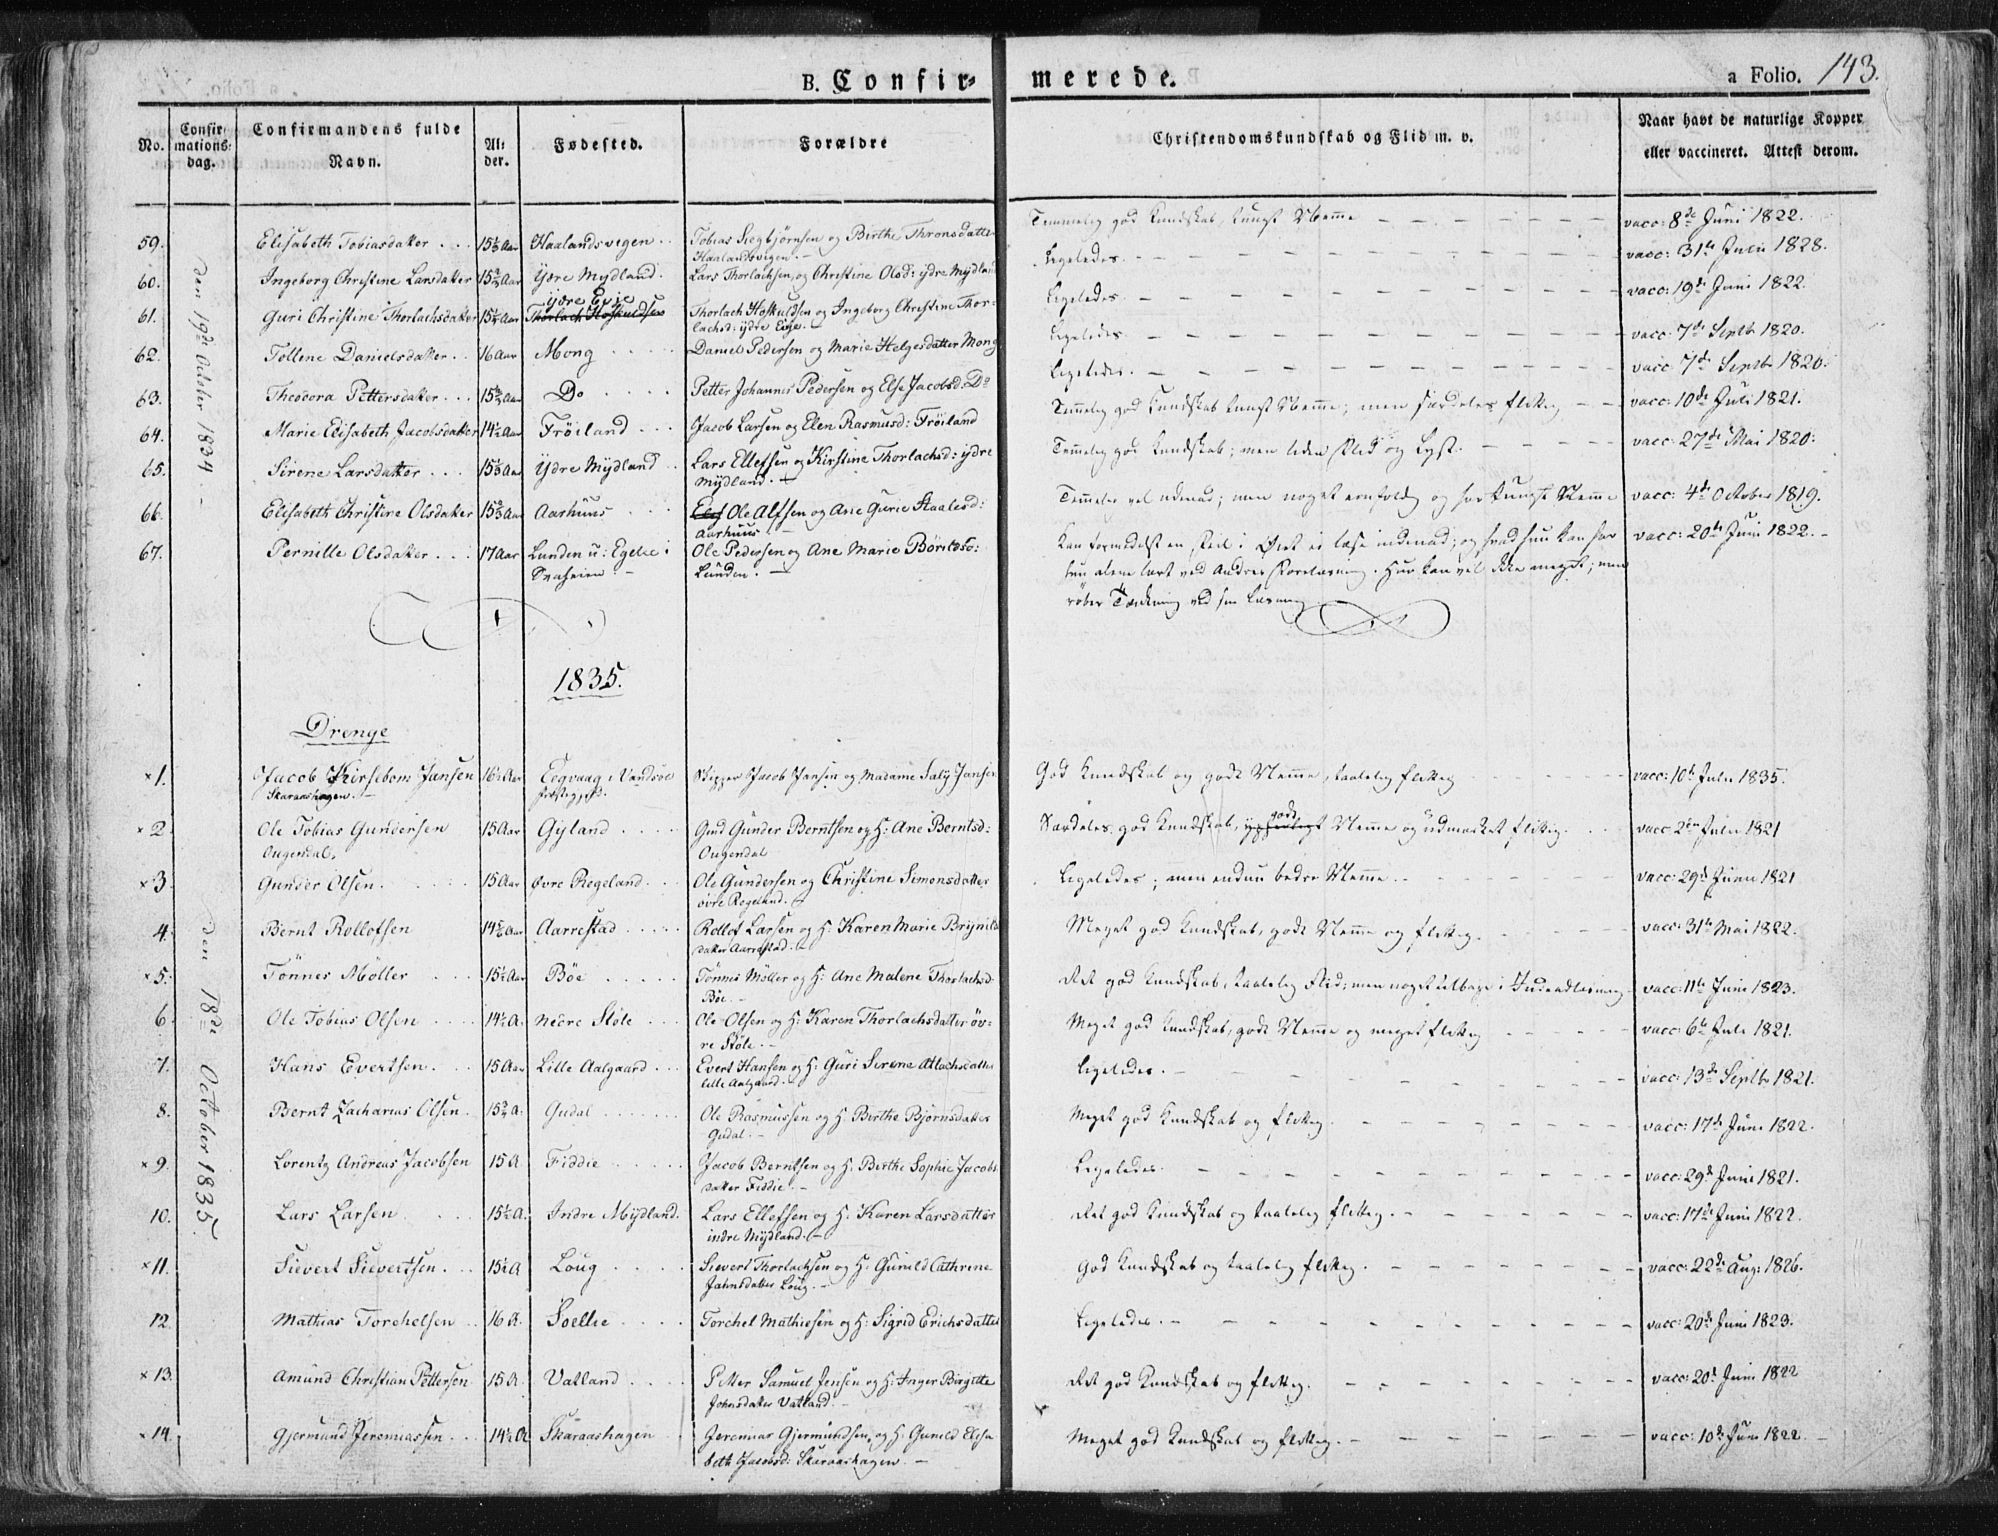 B. Confirmerede.
a Folio. 143.
No.
Confirmationsdag.
Confirmandens fulde Navn.
Alder.
Fødested.
Forældre
Christendomskundskab og Flid m. v.
Naar havt de naturlige Kopper
eller vaccineret. Attest derom.
den 19de October 1834
59. Elisabeth Tobiasdatter 15½ Aar Haalandsvigen Tobias Siegbjørnsen og Birthe Thronsdatter Temmelig god Kundskab, tungt Nemme vacc: 8de Juni 1822.
Haalandsvigen.
60. Ingeborg Christine Larsdatter Aar Ydre Mydland. Lars Thorlachsen og Christine Olsd: ydre Mydland Ligeledes. vacc: 31te Julii 1828.
ydre Eeje
61. Guri Christine Thorlachsdatter Aar Thorlach Hoskuldsen Thorlach Hoskuldsen og Ingeborg Christine Thor- Ligeledes. vacc: 19de Juni 1822.
lachsd: ydre Eeje.
62. Tollene Danielsdatter 16 Aar Mong Daniel Pedersen og Marie Helgesdatter Mong Ligeledes. vacc: 7de Septb 1820.
63. Theodora Pettersdatter Aar Do Petter Johannes Pedersen og Else Jacobsd: Do Ligeledes. vacc: 7de Septb 1820.
64. Marie Elisabeth Jacobsdatter 14½ Aar Frøiland Jacob Larsen og Elen Rasmusd: Frøiland Temmelig god Kundskab tungt Nemme; men særdeles flittig vacc: 10de Juli 1821.
65. Sirene Larsdatter Aar Ydre Mydland Lars Ellefsen og Kirstine Thorlachsd: ydre Temmelig god Kundskab; men liden Flid og Lyst. vacc: 27de Mai 1820.
Mydland.
66. Elisabeth Christine Olsdatter Aar Aarhuus Ole Alfsen og Ane Gurie Staalesd: Temmelig vel udenad; men noget eenfoldig og har tungt Nemme vacc: 4de October 1819.
Aarhuus
67. Pernille Olsdatter 17 Aar Lunden u: Egelie i Ole Pedersen og Ane Marie Børildsd: Kan formedelst en Feil i Øiet ei læse indenad; og hvad hun kan har vacc: 20de Juni 1822.
Svaheien. Lunden. hun alene lært ved Andres Forelæsning. Hun kan vel ikke meget; men
røber Tænkning ved sin Læsning
1835.
Drenge
den 18de October 1835
×1. Jacob Kirsebom Jansen 16½ Aar Eegvaag i Vandsøe Skipper Jacob Jansen og Madame Saly Jansen God Kundskab og godt Nemme, taalelig flittig vacc: 10de Julii 1835.
Skaraashagen. Præstegjeld.
×2. Ole Tobias Gundersen 15 Aar Gyland Gmd Gunder Berntsen og H: Ane Berntsd: Særdeles god Kundskab, godt Nemme og udmærket flittig. vacc: 2den Julii 1821
Ougendal. Ougendal
×3. Gunder Olsen 15 Aar Øvre Regeland Ole Gundersen og Christine Simonsdatter Ligeledes; men endnu bedre Nemme. vacc: 29de Junii 1821
øvre Regeland.
4. Bernt Rollofsen Aar Aarrestad Rollof Larsen og H: Karen Marie Brynilds Meget god Kundskab, godt Nemme og flittig. vacc: 31te Mai 1822.
datter Aarrestad.
×5. Tönnes Möller 15½ Aar Bøe Tönnes Möller og H: Ane Malene Thorlachsd: Ret god Kundskab, taalelig Flid; men noget tilbage i Indenadlæsning. vacc: 11te Juni 1823.
Bøe.
6. Ole Tobias Olsen 14½ A. Nedre Støle Ole Olsen og H: Karen Thorlachsdatter øv- Meget god Kundskab, godt Nemme og meget flittig vacc: 6te Juli 1821.
re Støle.
7. Hans Evertsen 15 Aar Lille Aalgaard Evert Hansen og H: Guri Serene Atlachsdatter Ligeledes. vacc: 13de Septb 1821.
lille Aalgaard.
8. Bernt Zacharias Olsen A. Gudal Ole Rasmussen og H. Birthe Bjørnsdatter Meget god Kundskab og flittig. vacc: 17de Juni 1822.
Gudal.
×9. Lorentz Andreas Jacobsen 15 A. Fiddie Jacob Berntsen og H. Birthe Sophie Jacobs Ligeledes. vacc: 29de Juni 1821.
datter Fiddie.
10. Lars Larsen 15½ A. Indre Mydland. Lars Ellefsen og H. Karen Larsdatter Ret god Kundskab og taalelig flittig. vacc: 17de Juni 1822.
indre Mydland.
×11. Sievert Sievertsen 15½ A Loug Sievert Thorlachsen og H: Gunild Cathrine God Kundskab og taalelig flittig. vacc: 22de Aug: 1826.
Jahnsdatter Loug.
12. Mathias Torchelsen 16 A. Soellie Torchel Mathiesen og H: Sigrid Erichsdatter Ligeledes. vacc: 20de Juni 1823.
×13. Amund Christian Pettersen 15 A. Vatland Petter Samuel Jensen og H: Inger Birgitte Ret god Kundskab og flittig. vacc: 20de Juni 1822
Johnsdatter Vatland.
×14. Gjermund Jeremiassen 14½ A Skaraashagen Jeremias Gjermundsen og H: Gunild Elisa Meget god Kundskab og flittig. vacc: 10de Juni 1822.
beth Jacobsd: Skaraashagen.